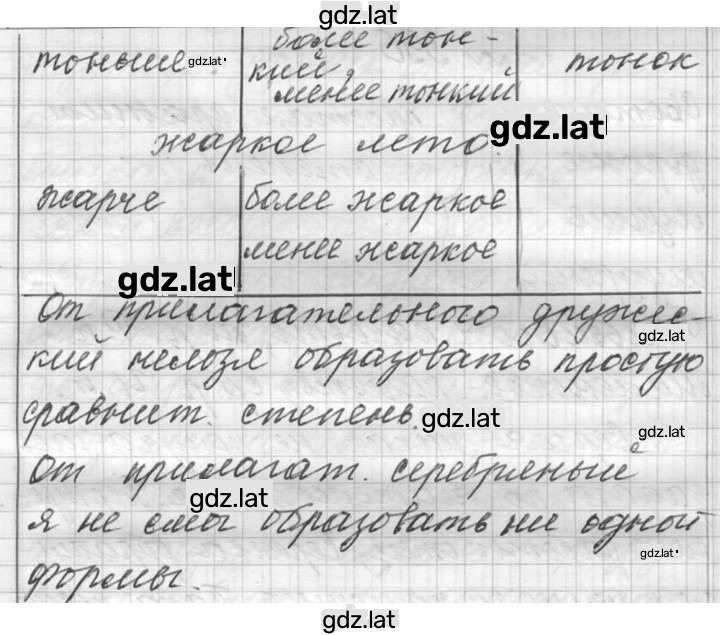 gdz.lat
тоньше gdz.lat более тон- тонок
кий,
менее тонкий
gdz.lat
жаркое лето.
жарче более жаркое
менее жаркое
gdz.lat
От прилагательного дружес-
gdz.lat
кий нельзя образовать простую
сравнит. степень. gdz.lat
gdz.lat
От прилагат. серебряный
gdz.lat
я не смог образовать ни одной
gdz.lat
формы.
gdz.lat